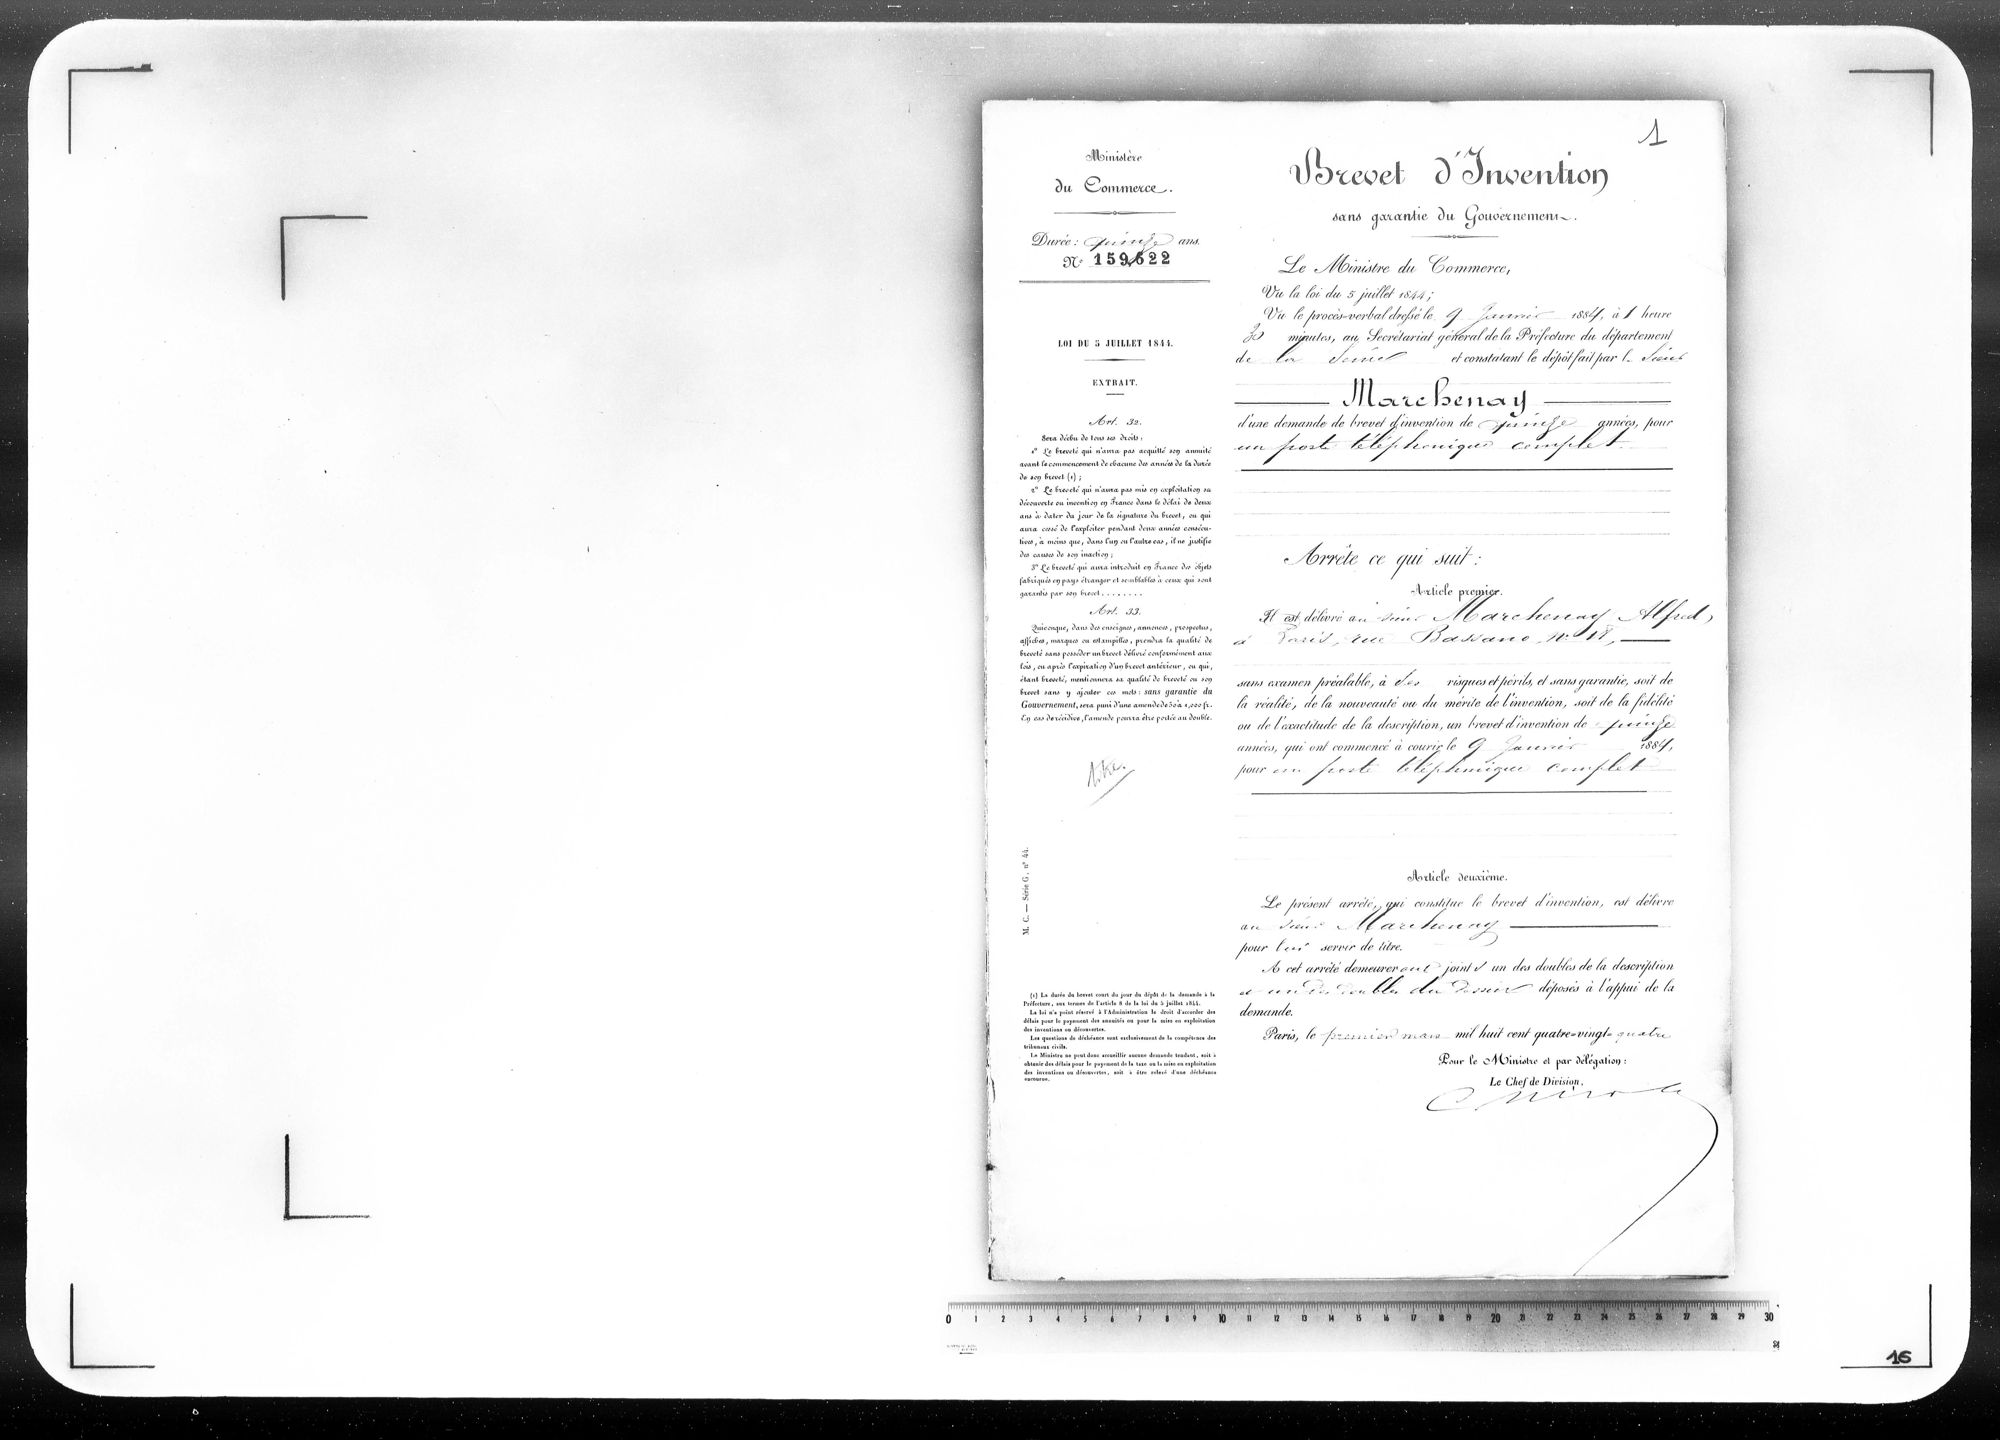 1
Ministère
du Commerce.
Durée : quinze ans.
N° 159,622
LOI DU 5 JUILLET 1844.
EXTRAIT.
Art. 32.
Sera déchu de tous ses droits :
1° Le breveté qui n'aura pas acquitté son annuité
avant le commencement de chacune des années de la durée
de son brevet (1) ;
2° Le breveté qui n'aura pas mis en exploitation sa
découverte ou invention en France dans le délai de deux
ans à dater du jour de la signature du brevet, ou qui
aura cessé de l'exploiter pendant deux années consécu-
tives, à moins que, dans l'un ou l'autre cas, il ne justifie
des causes de son inaction ;
3° Le breveté qui aura introduit en France des objets
fabriqués en pays étranger et semblables à ceux qui sont
garantis par son brevet........
Art. 33.
Quiconque, dans des enseignes, annonces, prospectus,
affiches, marques ou estampilles, prendra la qualité de
breveté sans posséder un brevet délivré conformément aux
lois, ou après l'expiration d'un brevet antérieur, ou qui,
étant breveté, mentionnera sa qualité de breveté ou son
brevet sans y ajouter ces mots : sans garantie du
Gouvernement, sera puni d'une amende de 50 à 1,000 fr.
En cas de récidive, l'amende pourra être portée au double.
M. C. — Série G, n° 44.
(1) La durée du brevet court du jour du dépôt de la demande à la
Préfecture, aux termes de l'article 8 de la loi du 5 juillet 1844.
La loi n'a point réservé à l'Administration le droit d'accorder des
délais pour le payement des annuités ou pour la mise en exploitation
des inventions ou découvertes.
Les questions de déchéance sont exclusivement de la compétence des
tribunaux civils.
Le Ministre ne peut donc accueillir aucune demande tendant, soit à
obtenir des délais pour le payement de la taxe ou la mise en exploitation
des inventions ou découvertes, soit à être relevé d'une déchéance
encourue.
Brevet d'Invention
sans garantie du Gouvernement.
Le Ministre du Commerce,
Vu la loi du 5 juillet 1844 ;
Vu le procès-verbal dressé le 9 Janvier 1884, à 1 heure
30 minutes, au Secrétariat général de la Préfecture du département
de la Seine et constatant le dépôt fait par le Sieur
Marchenay
d'une demande de brevet d'invention de quinze années, pour
un poste téléphonique complet
Arrête ce qui suit :
Article premier.
Il est délivré au sieur Marchenay Alfred,
à Paris, rue Bassano n° 18,
sans examen préalable, à ses risques et périls, et sans garantie, soit de
la réalité, de la nouveauté ou du mérite de l'invention, soit de la fidélité
ou de l'exactitude de la description, un brevet d'invention de quinze
années, qui ont commencé à courir le 9 Janvier 1884,
pour un poste téléphonique complet
Article deuxième.
Le présent arrêté, qui constitue le brevet d'invention, est délivré
au sieur Marchenay
pour lui servir de titre.
A cet arrêté demeureront joints un des doubles de la description
et un des doubles du dessin déposés à l'appui de la
demande.
Paris, le premier mars mil huit cent quatre-vingt-quatre
Pour le Ministre et par délégation :
Le Chef de Division,
0 1 2 3 4 5 6 7 8 9 10 11 12 13 14 15 16 17 18 19 20 21 22 23 24 25 26 27 28 29 30
16